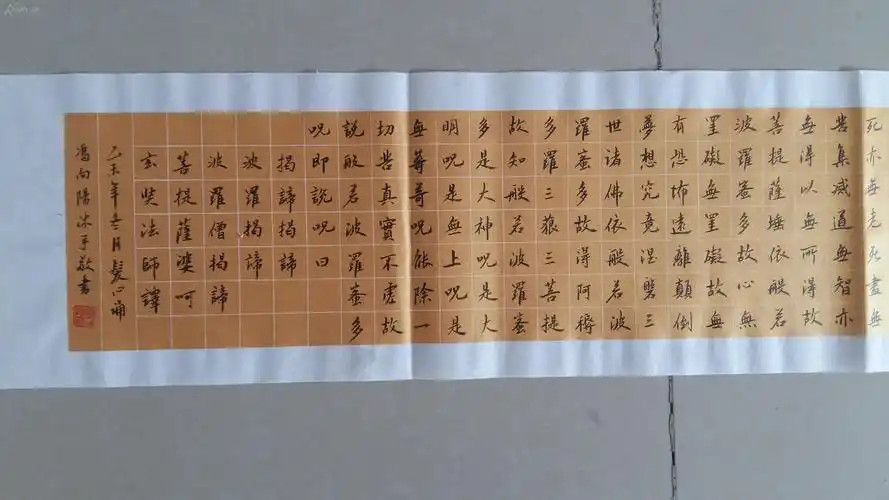 死亦無老死盡無
苦集滅道無智亦
無得以無所得故
菩提薩埵依般若
波羅蜜多故心無
罣礙無罣礙故無
有恐怖遠離顛倒
夢想究竟涅槃三
世諸佛依般若波
羅蜜多故得阿耨
多羅三藐三菩提
故知般若波羅蜜
多是大神呪是大
明呪是無上呪是
無等等呪能除一
切苦真實不虛故
說般若波羅蜜多
呪即說呪曰
揭諦揭諦
波羅揭諦
波羅僧揭諦
菩提薩婆呵
玄奘法師譯
乙未年冬月發心誦
馮向陽沐手敬書